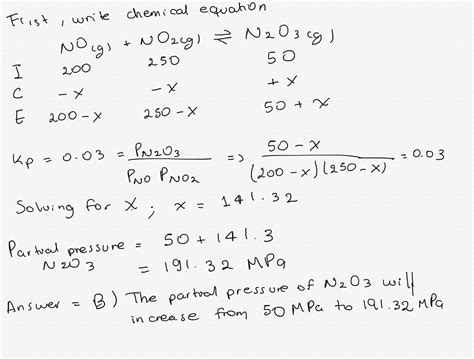 First, write chemical equation
NO(g) + NO2(g) ⇌ N2O3(g)
I 200 250 50
C -x -x +x
E 200-x 250-x 50+x
Kp = 0.03 = PN2O3 / PNO PNO2 => 50-x / (200-x)(250-x) = 0.03
Solving for x; x = 141.32
Partial pressure N2O3 = 50 + 141.3
= 191.32 MPa
Answer = B) The partial pressure of N2O3 will
increase from 50 MPa to 191.32 MPa